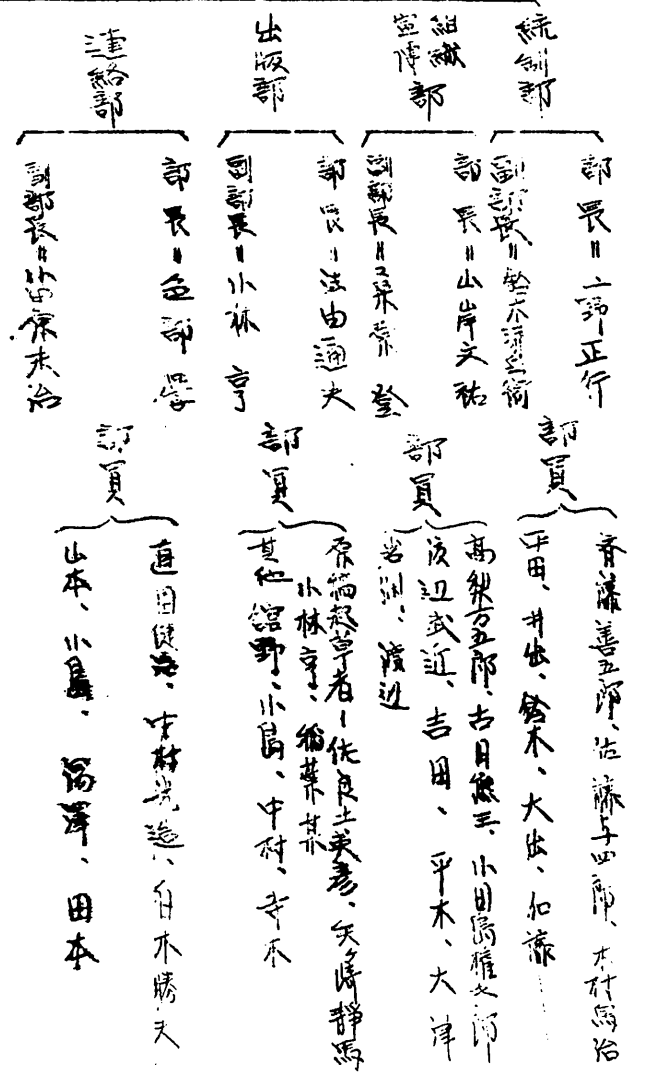 統制部
部長＝上野正行
副部長＝鈴木源兵衛
部員
斉藤善五郎、佐藤与四郎、木村寓治
平田、井出、鈴木、大出、加藤……
組織
宣傳
部
部長＝山岸文祐
副部長＝桑原 登
部員
高梨万五郎、古月熊三、小田島権次郎
渡辺武近、吉田、平木、大津
岩渕、渡辺
出版部
部長＝法由通夫
副部長＝小林 亨
部員
原稿起草者－佐良土英彦、矢崎静馬
小林亨、稲葉某
其他 舘野、小島、中村、寺本
連絡部
部長＝色部 学
副部長＝小田原末治
部員
中村光造、白木勝夫
山本、小島、湯澤、田本